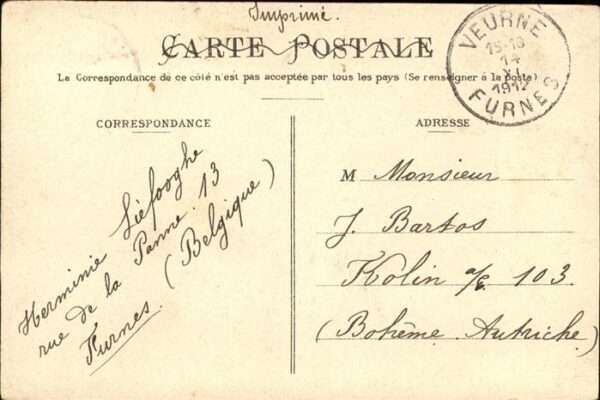 Imprimé.
CARTE POSTALE
La Correspondance de ce côté n'est pas acceptée par tous les pays (Se renseigner à la poste)
VEURNE
15-16
14
XI
1912
FURNES
CORRESPONDANCE
Herminie Liéfooghe
rue de la Panne. 13
Furnes. (Belgique)
ADRESSE
M Monsieur
J. Bartos
Kolin a/E 103.
(Bohême. Autriche.)